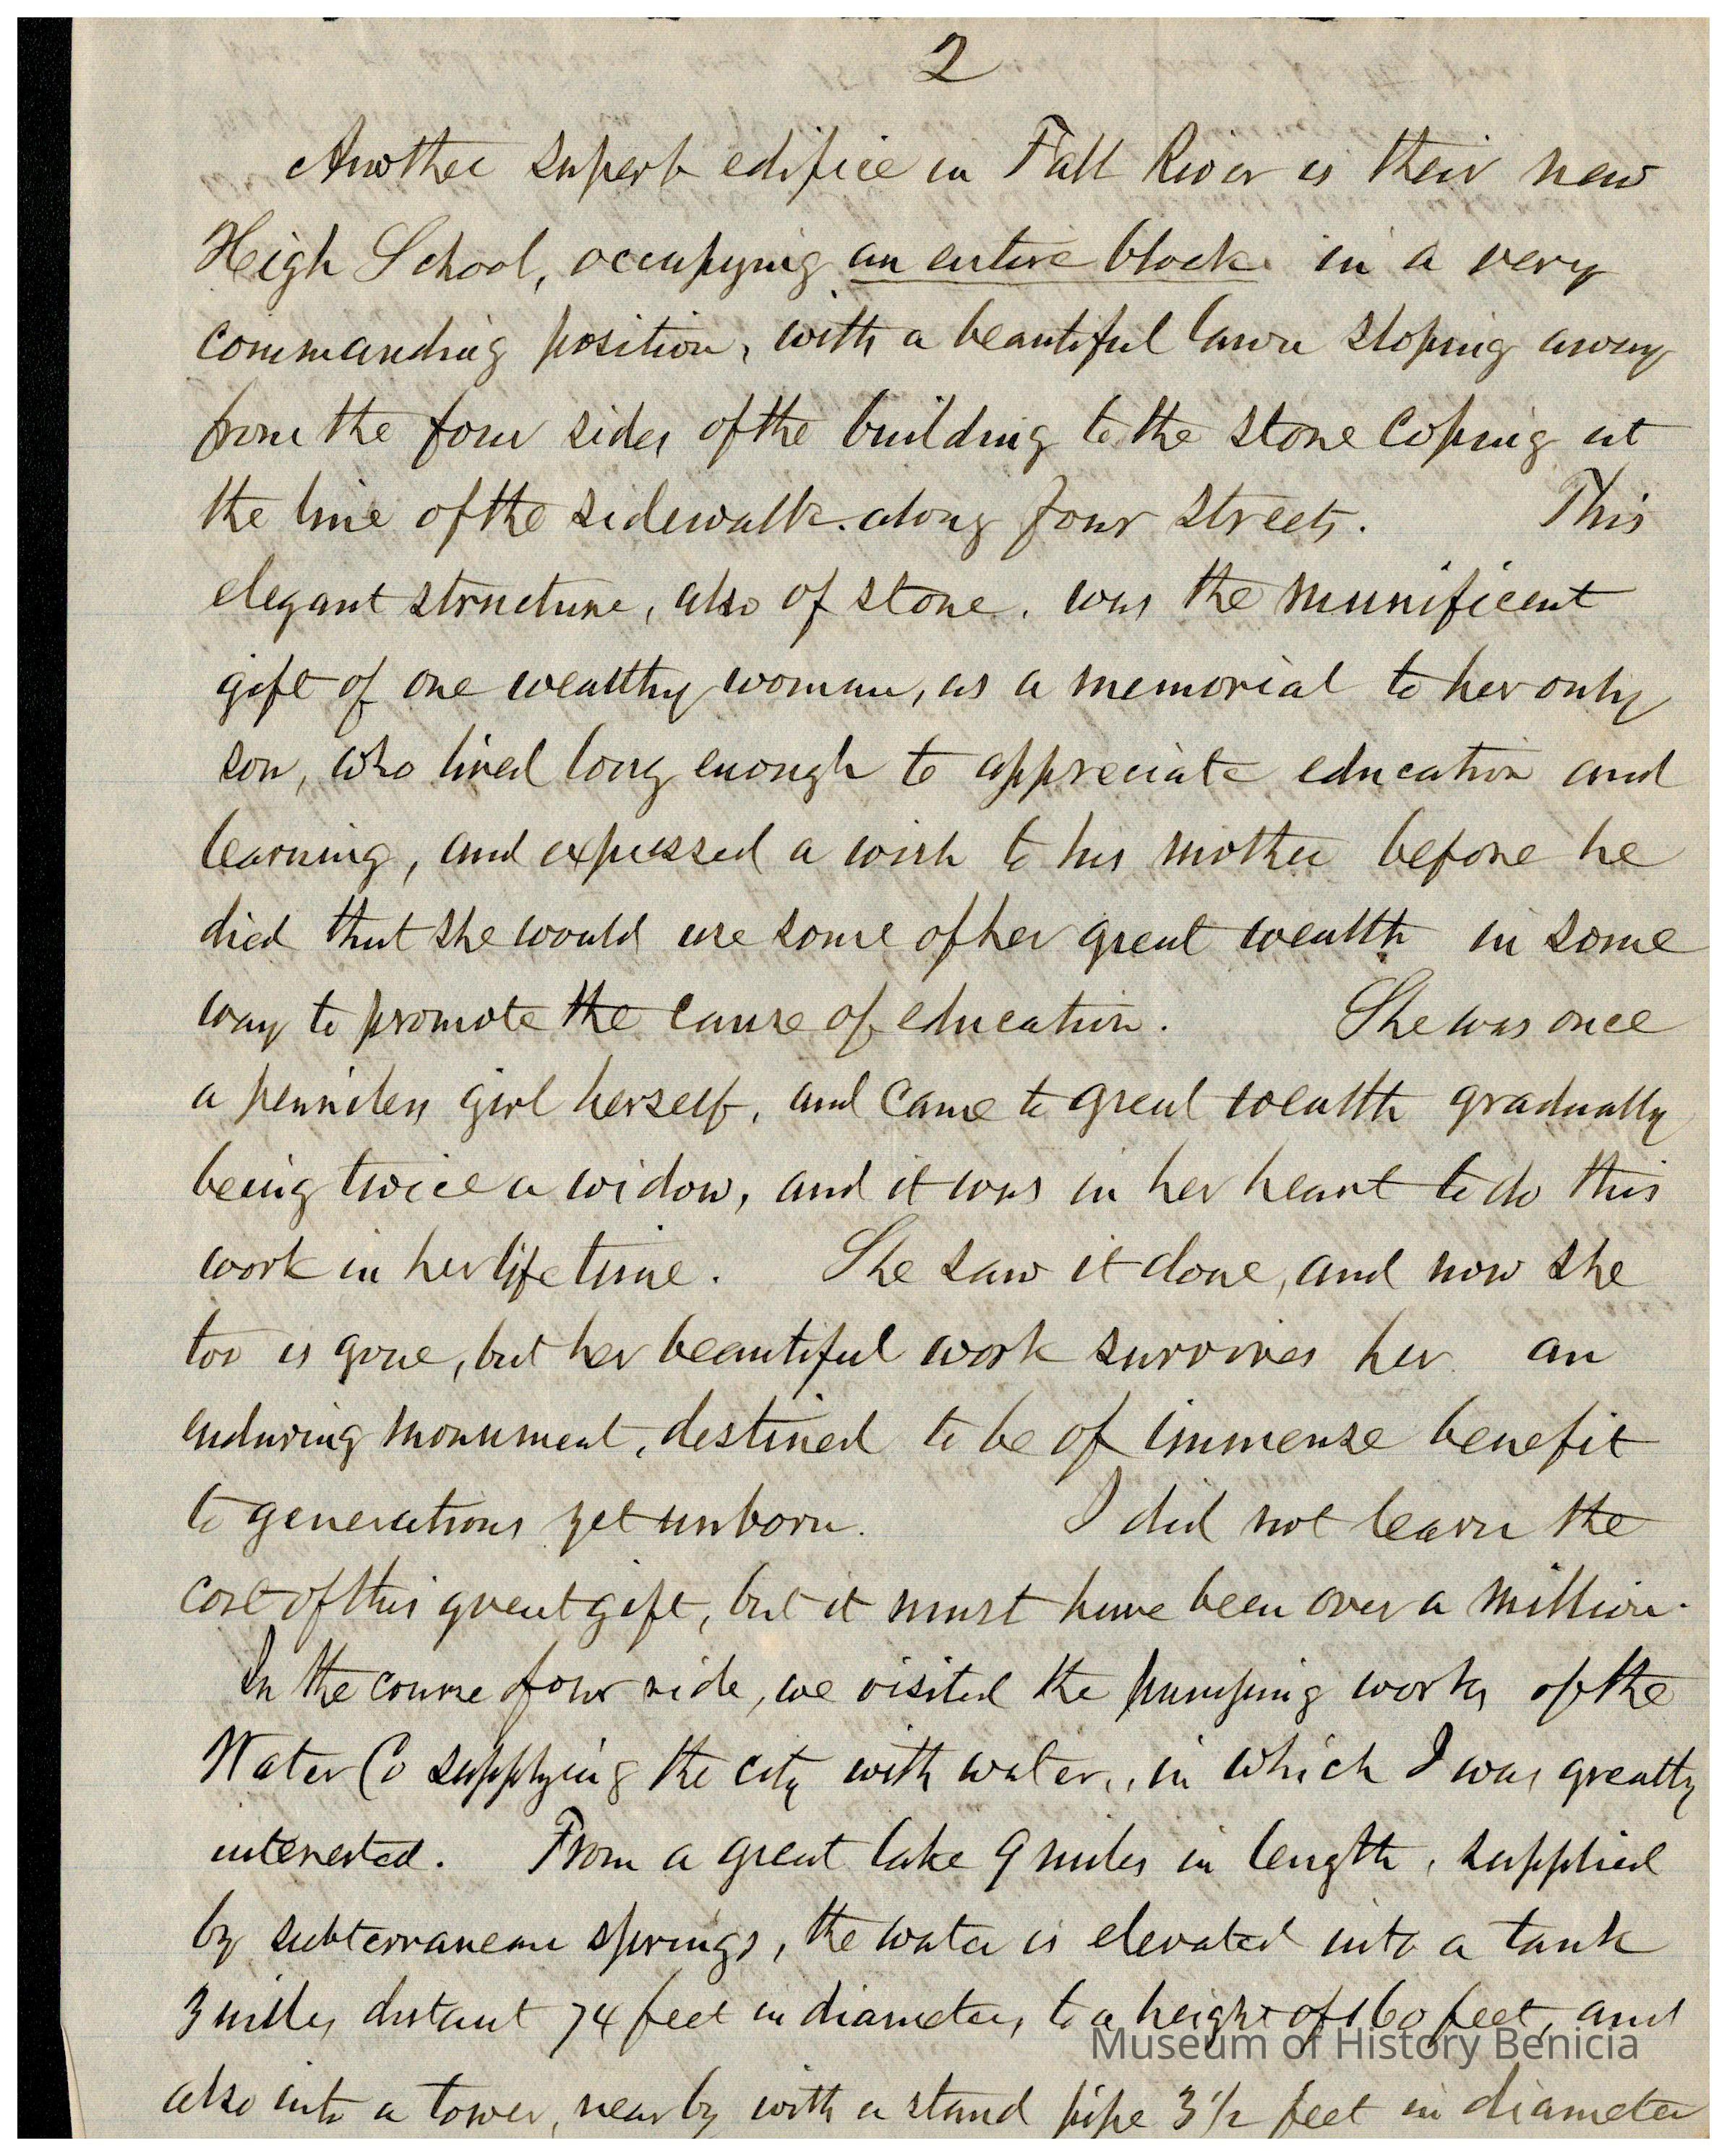 2
Another superb edifice in Fall River is their new
High School, occupying an entire block in a very
commanding position, with a beautiful lawn sloping away
from the four sides of the building to the stone coping at
the line of the sidewalk along four streets. This
elegant structure, also of stone, was the munificent
gift of one wealthy woman, as a memorial to her only
son, who lived long enough to appreciate education and
learning, and expressed a wish to his mother before he
died that she would use some of her great wealth in some
way to promote the cause of education. She was once
a penniless girl herself, and came to great wealth gradually
being twice a widow, and it was in her heart to do this
work in her life time. She saw it done, and now she
too is gone, but her beautiful work survives her an
enduring monument, destined to be of immense benefit
to generations yet unborn. I did not learn the
cost of this great gift, but it must have been over a million.
In the course of our ride, we visited the pumping works of the
Water Co supplying the city with water, in which I was greatly
interested. From a great lake 9 miles in length, supplied
by subterranean springs, the water is elevated into a tank
3 miles distant 74 feet in diameter, to a height of 160 feet, and
Museum of History Benicia
also into a tower, near by with a stand pipe 3 1/2 feet in diameter